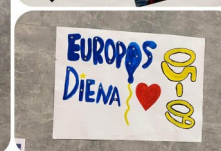 EUROPOS
DIENA
05-09